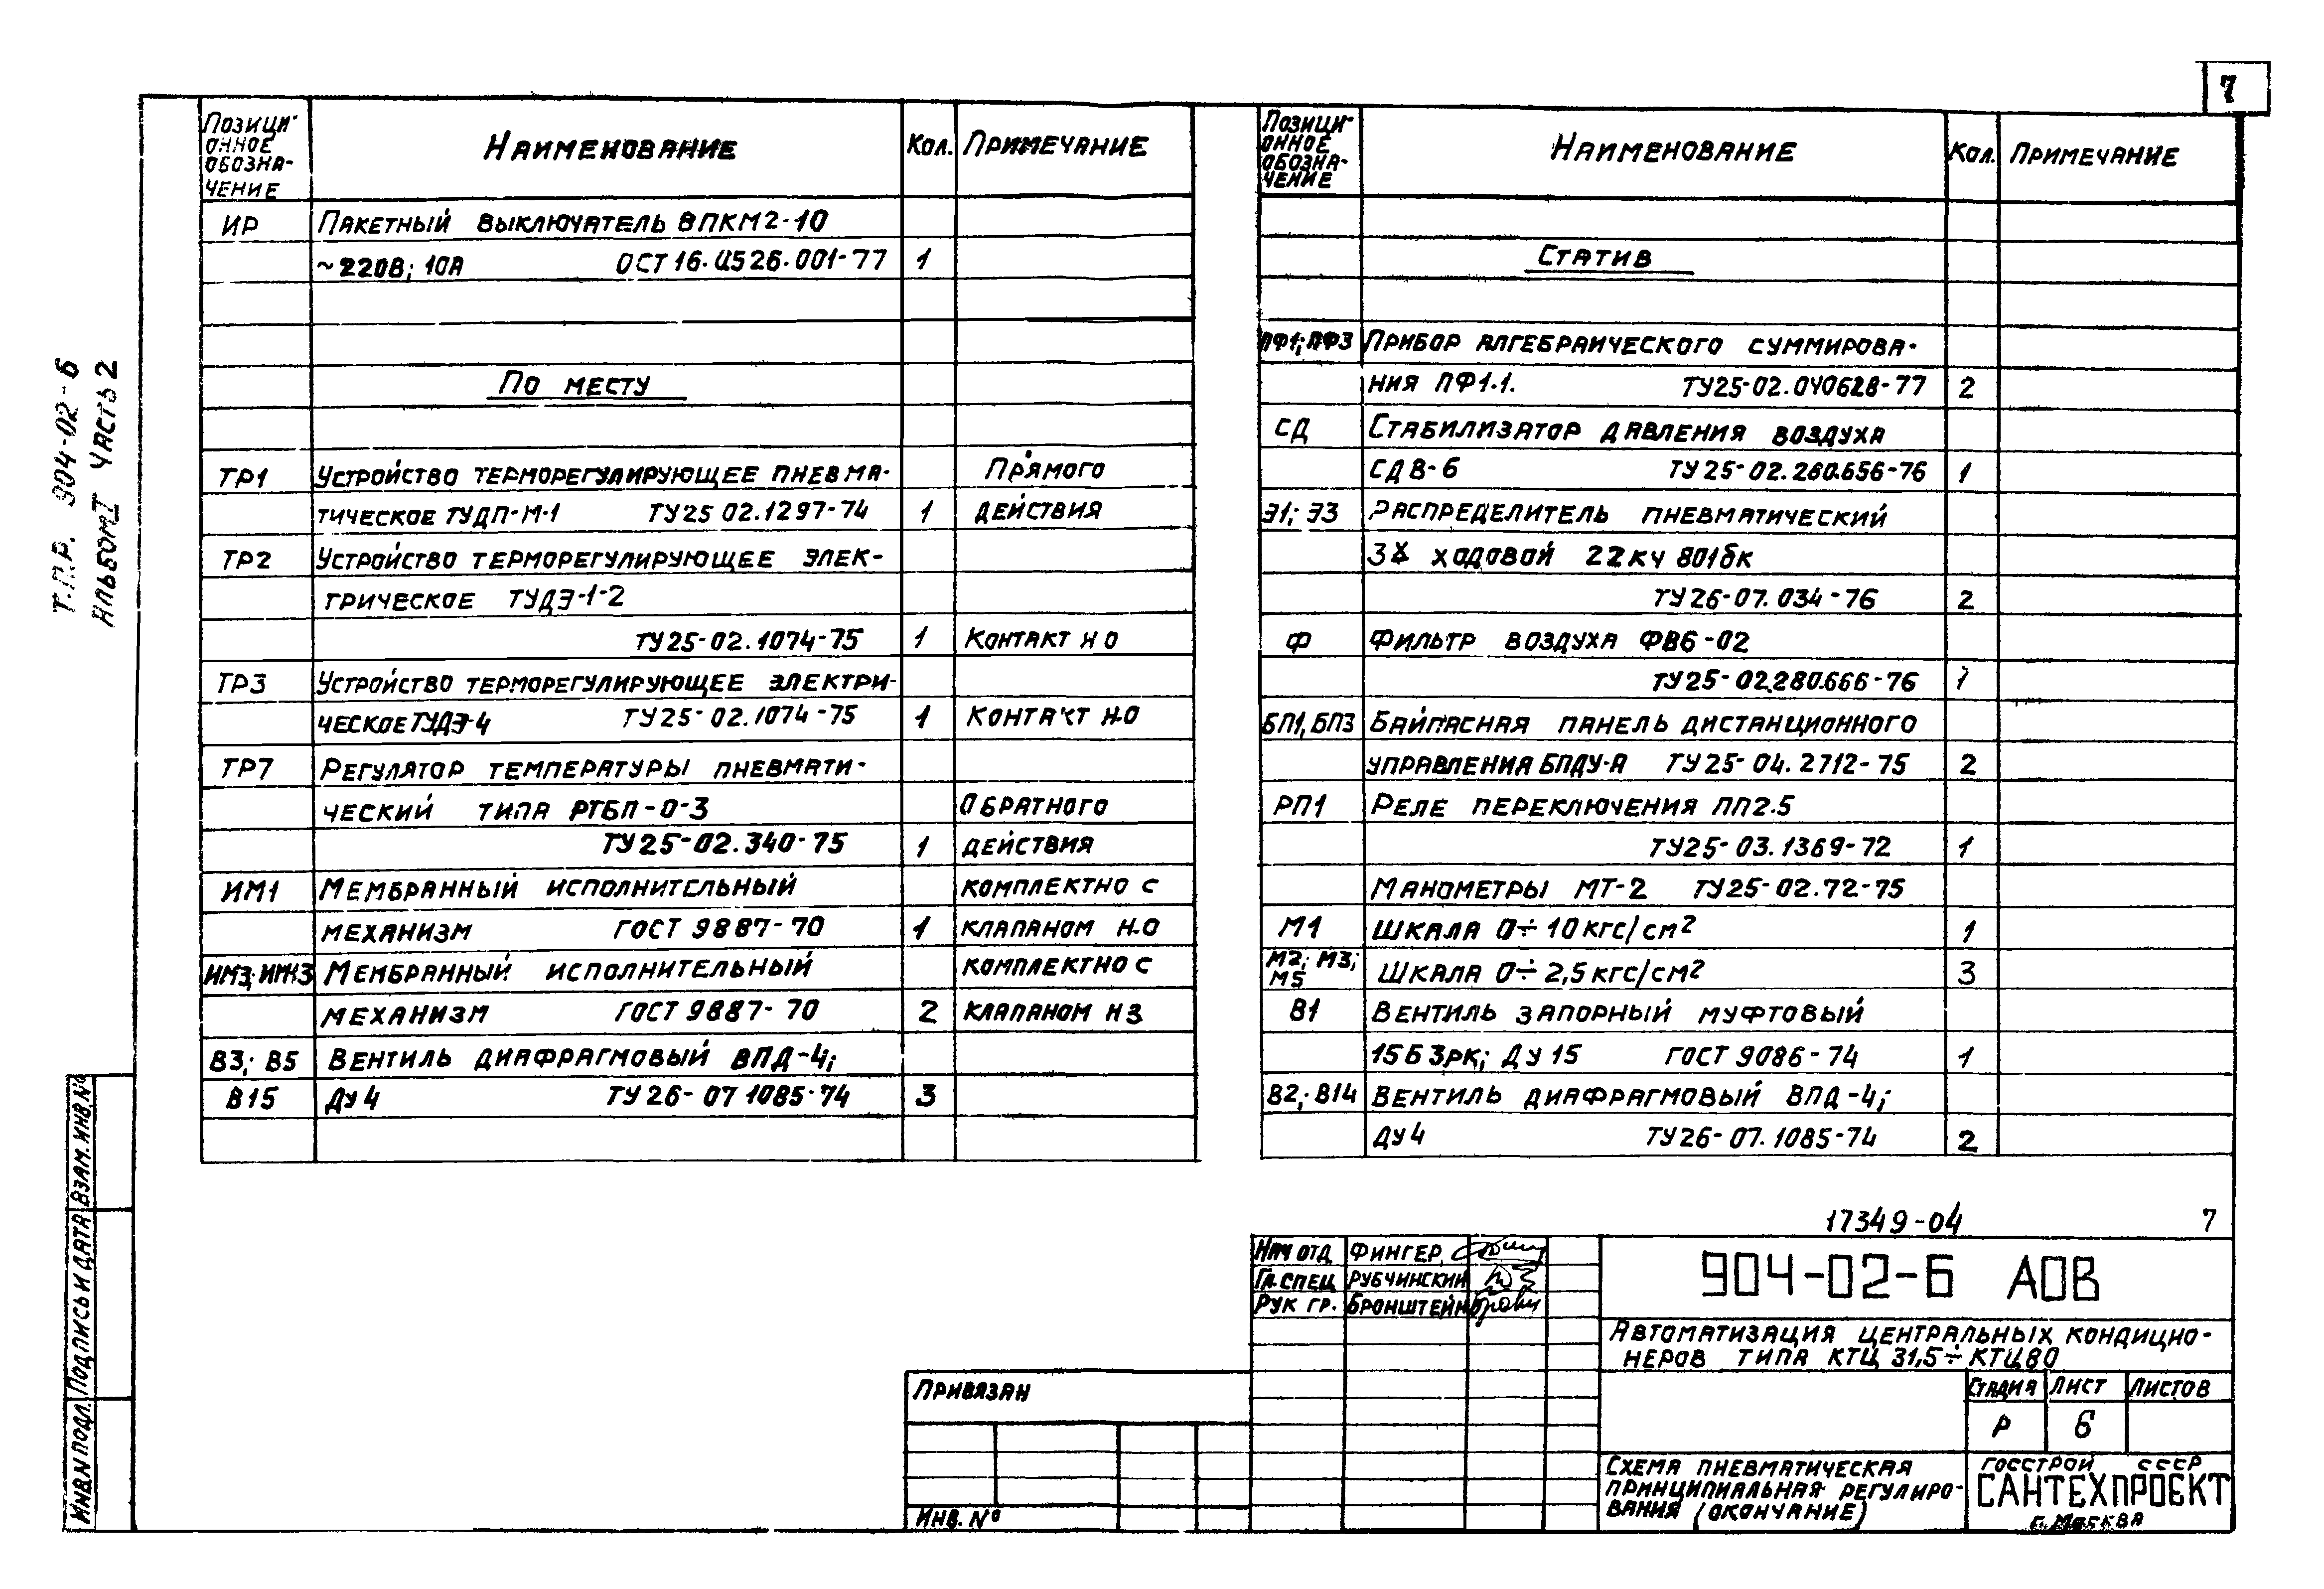 7
Т.П.Р. 904-02-6
Альбом I Часть 2
Позици- Наименование Кол. Примечание
онное
обозна-
чение
ИР Пакетный выключатель ВПКМ2-10
~220В; 10А ОСТ 16. 0526.001-77 1
По месту
ТР1 Устройство терморегулирующее пневма- Прямого
тическое ТУДП-М-1 ТУ25 02.1297-74 1 действия
ТР2 Устройство терморегулирующее элек-
трическое ТУДЭ-1-2
ТУ25-02.1074-75 1 Контакт НО
ТР3 Устройство терморегулирующее электри-
ческое ТУДЭ-4 ТУ25-02.1074-75 1 Контакт Н.О
ТР7 Регулятор температуры пневмати-
ческий типа РТБП-0-3 Обратного
ТУ25-02.340-75 1 действия
ИМ1 Мембранный исполнительный комплектно с
механизм ГОСТ 9887-70 1 клапаном Н.О
Мембранный исполнительный комплектно с
механизм ГОСТ 9887-70 2 клапаном НЗ
В3; В5 Вентиль диафрагмовый ВПД-4;
В15 Ду 4 ТУ 26-07 1085-74 3
Позици- Наименование Кол. Примечание
онное
обозна-
чение
Статив
ПФ1; ПФ3 Прибор алгебраического суммирова-
ния ПФ1.1. ТУ25-02.040628-77 2
СД Стабилизатор давления воздуха
СДВ-6 ТУ 25-02.280.656-76 1
Э1; Э3 Распределитель пневматический
3х ходовой 22кч 801бк
ТУ 26-07. 034-76 2
Ф Фильтр воздуха ФВ6-02
ТУ25-02.280.666-76 1
БП1, БП3 Байпасная панель дистанционного
управления БПДУ-А ТУ25-04.2712-75 2
РП1 Реле переключения ПП2.5
ТУ25-03.1369-72 1
Манометры МТ-2 ТУ25-02.72-75
М1 Шкала 0÷10 кгс/см² 1
М2; М3;
М5 Шкала 0÷2,5 кгс/см² 3
В1 Вентиль запорный муфтовый
15Б 3рк; Ду 15 ГОСТ 9086-74 1
В2; В14 Вентиль диафрагмовый ВПД-4;
Ду 4 ТУ26-07.1085-74 2
17349-04 7
Нач отд Фингер
Гл. спец Рубчинский
Рук гр. Бронштейн
904-02-6 АОВ
Автоматизация центральных кондицио-
неров типа КТЦ 31,5÷КТЦ80
Стадия Лист Листов
Р 6
Схема пневматическая
принципиальная регулиро-
вания (окончание)
Госстрой СССР
САНТЕХПРОЕКТ
г. Москва
Привязан
Инв. №
Инв.N подл. Подпись и дата Взам. инв. №